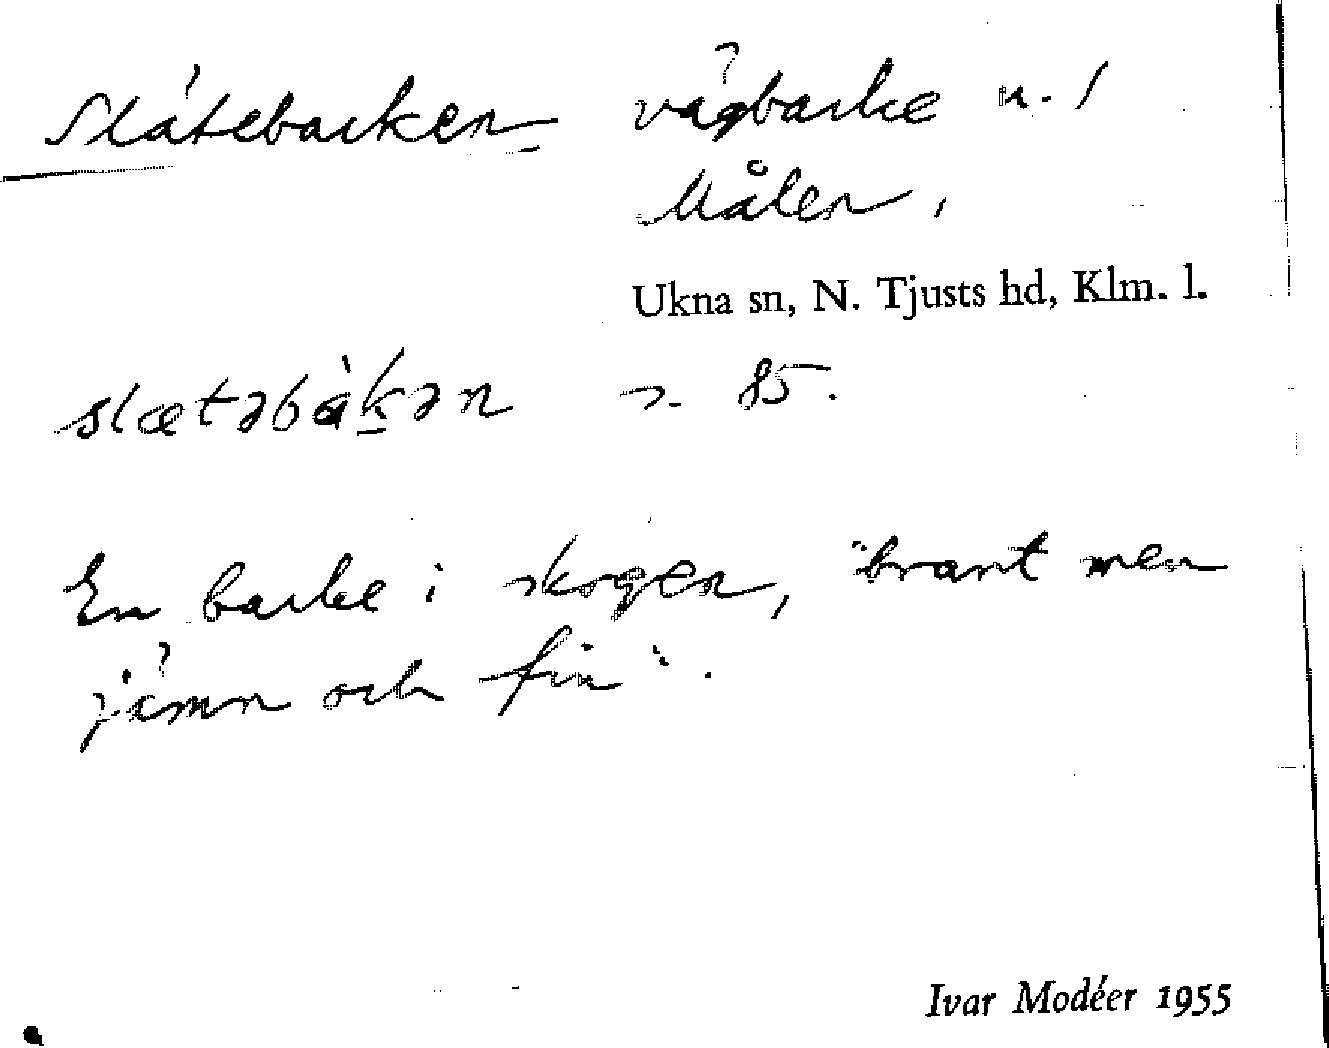 Slätebacken vägbacke n. /
Målen,
Ukna sn, N. Tjusts hd, Klm. l.
slætəbàkən s. 85.
En backe i skogen, "brant men
jämn och fin".
Ivar Modéer 1955